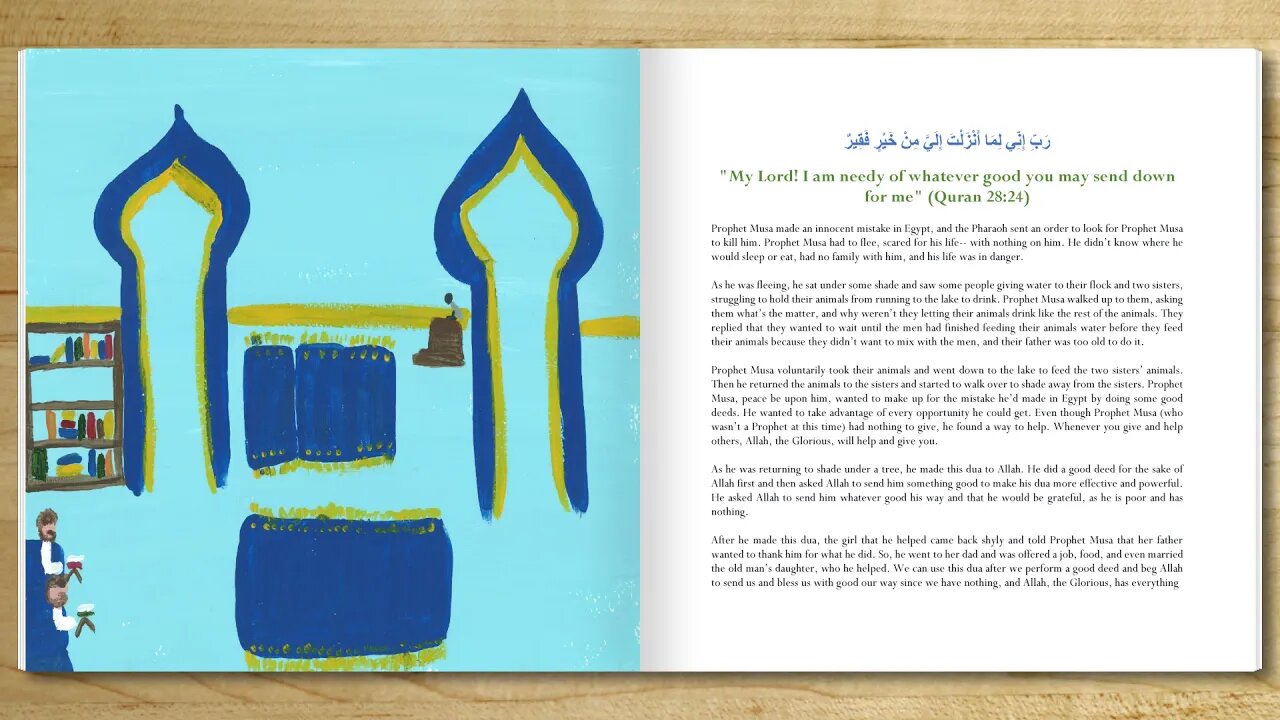 رَبِّ إِنِّي لِمَا أَنْزَلْتَ إِلَيَّ مِنْ خَيْرٍ فَقِيرٌ
"My Lord! I am needy of whatever good you may send down
for me" (Quran 28:24)
Prophet Musa made an innocent mistake in Egypt, and the Pharaoh sent an order to look for Prophet Musa
to kill him. Prophet Musa had to flee, scared for his life-- with nothing on him. He didn't know where he
would sleep or eat, had no family with him, and his life was in danger.
As he was fleeing, he sat under some shade and saw some people giving water to their flock and two sisters,
struggling to hold their animals from running to the lake to drink. Prophet Musa walked up to them, asking
them what's the matter, and why weren't they letting their animals drink like the rest of the animals. They
replied that they wanted to wait until the men had finished feeding their animals water before they feed
their animals because they didn't want to mix with the men, and their father was too old to do it.
Prophet Musa voluntarily took their animals and went down to the lake to feed the two sisters' animals.
Then he returned the animals to the sisters and started to walk over to shade away from the sisters. Prophet
Musa, peace be upon him, wanted to make up for the mistake he'd made in Egypt by doing some good
deeds. He wanted to take advantage of every opportunity he could get. Even though Prophet Musa (who
wasn't a Prophet at this time) had nothing to give, he found a way to help. Whenever you give and help
others, Allah, the Glorious, will help and give you.
As he was returning to shade under a tree, he made this dua to Allah. He did a good deed for the sake of
Allah first and then asked Allah to send him something good to make his dua more effective and powerful.
He asked Allah to send him whatever good his way and that he would be grateful, as he is poor and has
nothing.
After he made this dua, the girl that he helped came back shyly and told Prophet Musa that her father
wanted to thank him for what he did. So, he went to her dad and was offered a job, food, and even married
the old man's daughter, who he helped. We can use this dua after we perform a good deed and beg Allah
to send us and bless us with good our way since we have nothing, and Allah, the Glorious, has everything